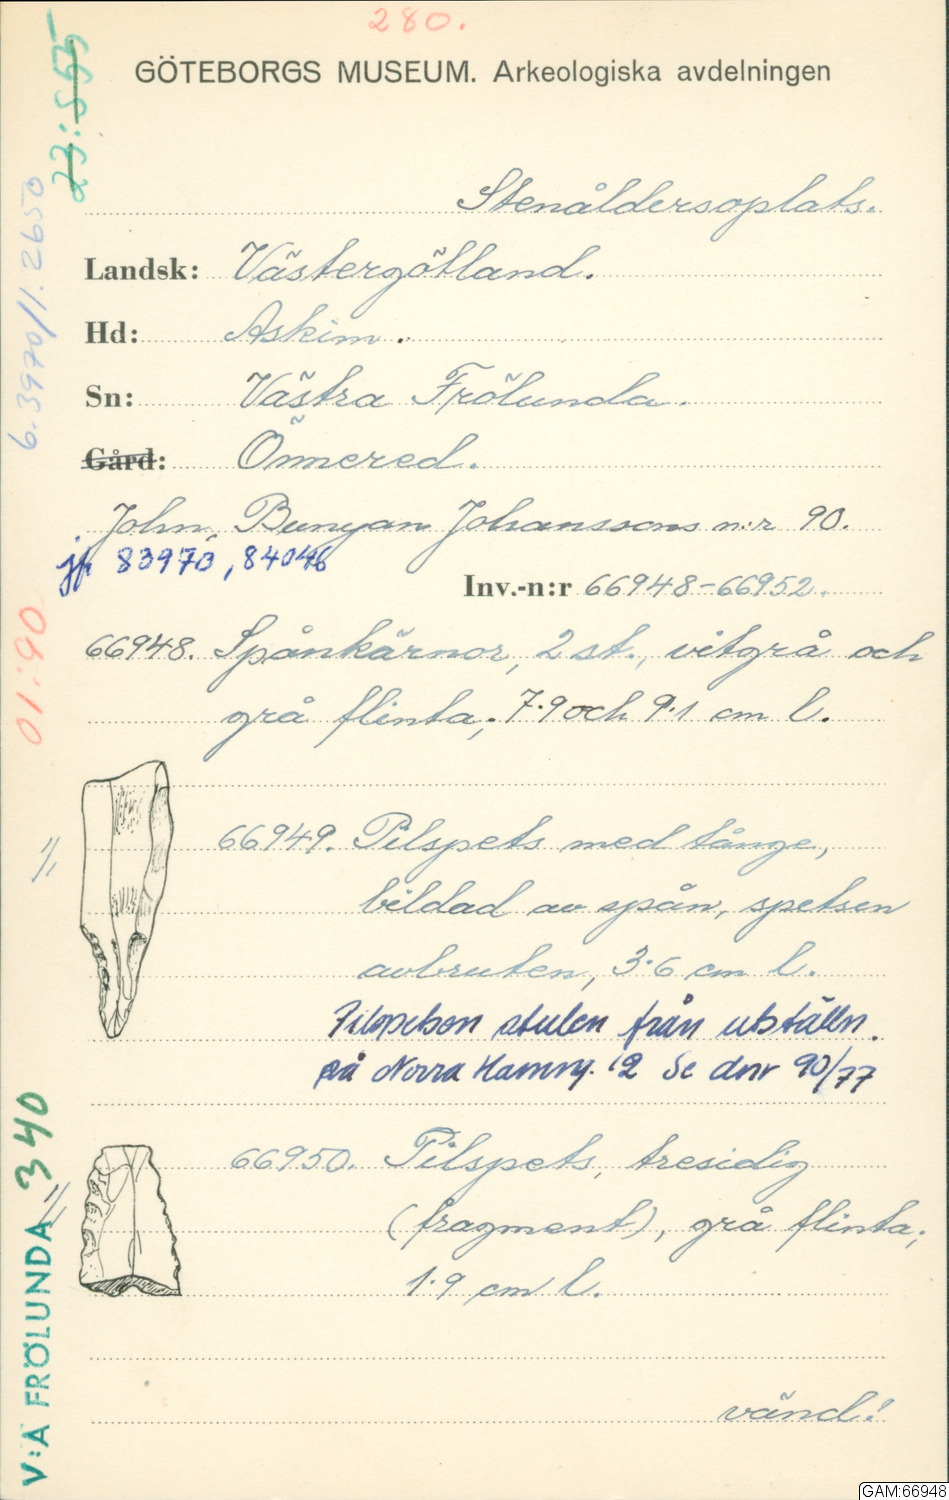 280.
GÖTEBORGS MUSEUM. Arkeologiska avdelningen
23:555
6.3970/1.2650
Stenåldersoplats.
Landsk: Västergötland.
Hd: Askim.
Sn: Västra Frölunda.
Gård: Önnered.
John Bunyan Johanssons n:r 90.
jfr 83973, 84046
Inv.-n:r 66948-66952.
01:90
66948. Spånkärnor, 2 st., vitgrå och
grå flinta; 7.9 och 9.1 cm l.
1/1
66949. Pilspets med tånge,
bildad av spån, spetsen
avbruten, 3.6 cm l.
Pilspetsen stulen från utställn.
på Norra Hamng. 12 Se dnr 90/77
1/1
66950. Pilspets, tresidig
(fragment), grå flinta;
1.9 cm l.
V:A FRÖLUNDA 340
vänd!
GAM:66948